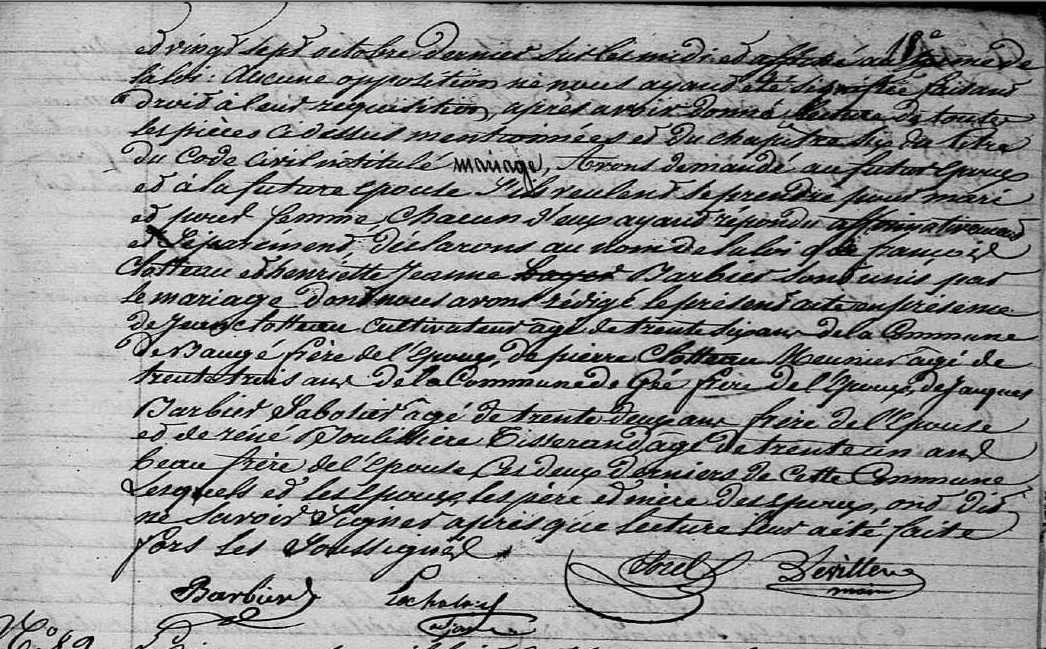 et vingt sept octobre dernier sur les midi et affiché au terme de
la loi. Aucune opposition ne nous ayant été signifiée faisant
droit à leur requisition, après avoir donné lecture de toute
les pièces ci dessus mentionnées et du chapitre six du titre
du Code Civil intitulé mariage, Avons demandé au futur Epoux
et à la future epouse s'ils veulent se prendre pour mari
et pour femme, chacun d'eux ayant répondu affirmativement
et séparément, déclarons au nom de la loi que françois
Clotteau et henriette Jeanne Barbier sont unis par
le mariage dont nous avons rédigé le présent acte en présence
de Jean Clotteau cultivateur agé de trente six ans de la Commune
de Baugé frère de l'Epoux, de pierre Clotteau Meunier agé de
trente trois ans de la Commune de Gée frère de l'Epoux, de Jacques
Barbier Sabotier âgé de trente deux ans frère de l'Epouse
et de réné Tisserand agé de trente un ans
beau frère de l'Epouse Ces deux derniers de cette Commune
Lesquels et les Epoux, les père et mère des Epoux, ont dit
ne savoir Signer après que lecture leur a été faite
fors les Soussignés
Barbier
N°